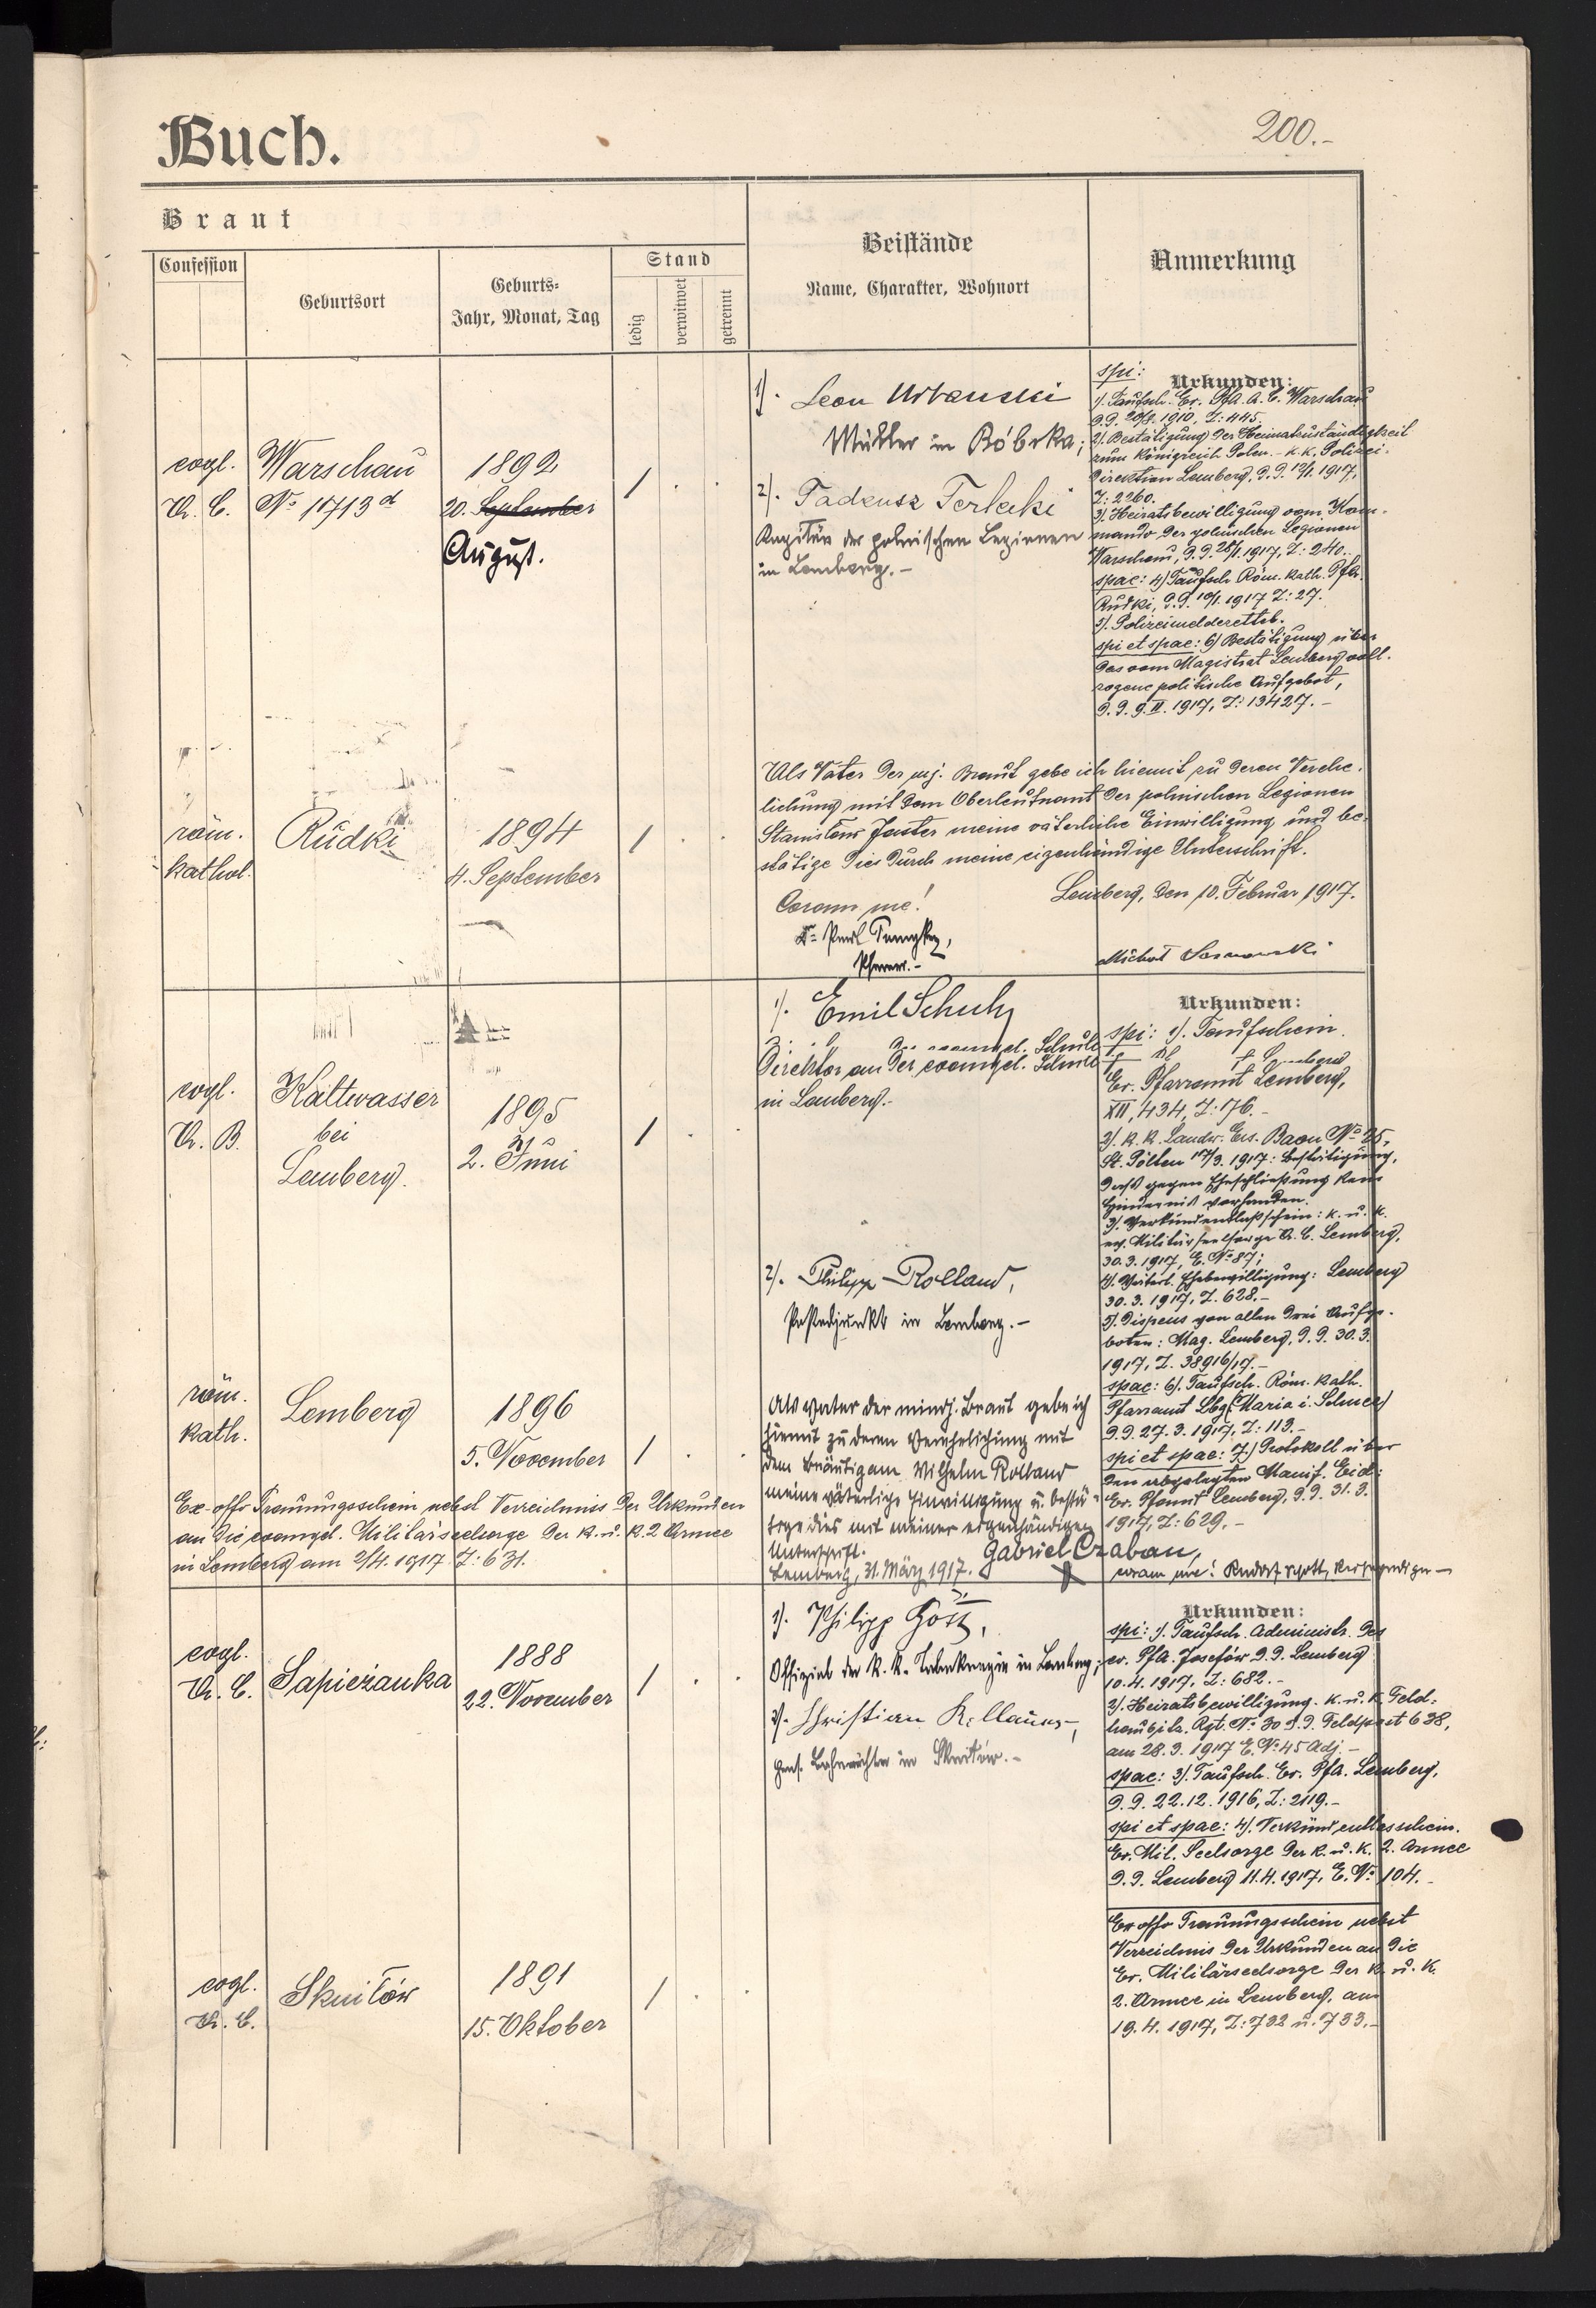 Buch.
200.-
Braut
Confession
Geburtsort
Geburts-
Jahr, Monat, Tag
Stand
ledig
verwitwet
getrennt
Beistände
Name, Charakter, Wohnort
Anmerkung
evgl.
A. C.
Warschau
No 1713d
1892
20. September
August.
1
1). Leon Urbanski
Müller in Bóbrka;
2). Tadeusz Terlecki
Kapitän der polnischen Legionen
in Lemberg.-
spi: Urkunden:
1). Taufsch. Ev. Pfa. A. C. Warschau
d.d. 20/8. 1910, Z: 445.
2). Bestätigung der Heimatzuständigkeit
zum Königreich Polen. - k.k. Polizei-
direktion Lemberg, d.d. 12/1. 1917,
Z: 2260.
3). Heiratsbewilligung vom Kom-
mando der polnischen Legionen
Warschau, d.d. 28/1. 1917, Z: 240.
spae: 4) Taufsch Röm. kath. Pfa.
Rudki, d.d. 10/1. 1917 Z: 27.
5). Polizeimeldezettel.
spi et spae: 6) Bestätigung über
das vom Magistrat Lemberg voll-
zogene politische Aufgebot,
d.d. 9. II. 1917, Z: 13427.-
röm.
kathol.
Rudki
1894
4. September
1
Als Vater der mj. Braut gebe ich hiemit zu deren Vereche-
lichung mit dem Oberleutnant der polnischen Legionen
Stanislaus Jaster meine väterliche Einwilligung und be-
stätige dies durch meine eigenhändige Unterschrift.
Lemberg, den 10. Februar 1917.
Coram me!
Pfarrer.-
Michał Sosnowski
evgl.
A. B.
Kaltwasser
bei
Lemberg.
1895
2. Juni
1
1). Emil Schuh
Direktor an der evangel. Schule
in Lemberg.-
2). Philipp Rolland,
Postadjunkt in Lemberg.-
Urkunden:
spi: 1). Taufschein.
Ev. Pfarramt Lemberg,
XII, 434, Z: 176.-
2). k. k. Landw. Ers. Baon No 25,
St. Pölten 17/3. 1917: Bestätigung,
dass gegen Eheschließung kein
Hindernis vorhanden.
3). Verkündentlaßschein: k. u. k.
ev. Militärseelsorge A. C. Lemberg,
30. 3. 1917, E. No 87;
4). Väterl. Ehebewilligung: Lemberg
30. 3. 1917, Z. 628.-
5). Dispens von allen drei Aufge-
boten: Mag. Lemberg, d.d. 30. 3.
1917, Z. 38916/17.-
spae: 6). Taufsch. Röm. kath.
Pfarramt Lbg (Maria i. Schnee)
d.d. 27. 3. 1917, Z: 113.-
spi et spae: 7.) Protokoll über
den abgelegten Manif. Eid:
Ev. Pfarramt Lemberg, d.d. 31. 3.
1917, Z: 629.-
röm.
kath.
Lemberg
1896
5. November
1
Als Vater der mindj. Braut gebe ich
hiemit zu deren Verehelichung mit
dem Bräutigam Wilhelm Rolland
meine väterliche Einwilligung u. bestä-
tige dies mit meiner eigenhändigen
Unterschrift.
Lemberg, 31. März 1917.
Gabriel Czaban,
coram me!
Ex-offo Trauungsschein nebst Verzeichniss der Urkunden
an die evangel. Militärseelsorge der k. u. k. 2 Armee
in Lemberg am 2/4. 1917 Z: 631.
evgl.
A. C.
Sapieżanka
1888
22. November
1
1). Philipp Gött,
in Lemberg;
2). Christian
Bahnwächter in Skniłów.-
Urkunden:
spi: 1). Taufsch. Administr. des
ev. Pfa. Josefów d.d. Lemberg
10. 4. 1917, Z: 682.-
2). Heiratsbewilligung. k. u. k. Feld-
haubitz. Rgt. No 30 d.d. Feldpost 638,
am 28. 3. 1917 E. No 45 Adj.-
spae: 3). Taufsch. Ev. Pfa. Lemberg,
d.d. 22. 12. 1916, Z: 2119.-
spi et spae: 4). Verkündentlasschein.
Ev. Mil. Seelsorge der k. u. k. 2. Armee
d.d. Lemberg 11. 4. 1917, E. No: 104.-
Ex offo Trauungsschein nebst
Verzeichnis der Urkunden an die
Ev. Militärseelsorge der k. u. k.
2. Armee in Lemberg, am
19. 4. 1917, Z: 732 u. 733.-
evgl.
A. C.
Skniłów
1891
15. Oktober
1